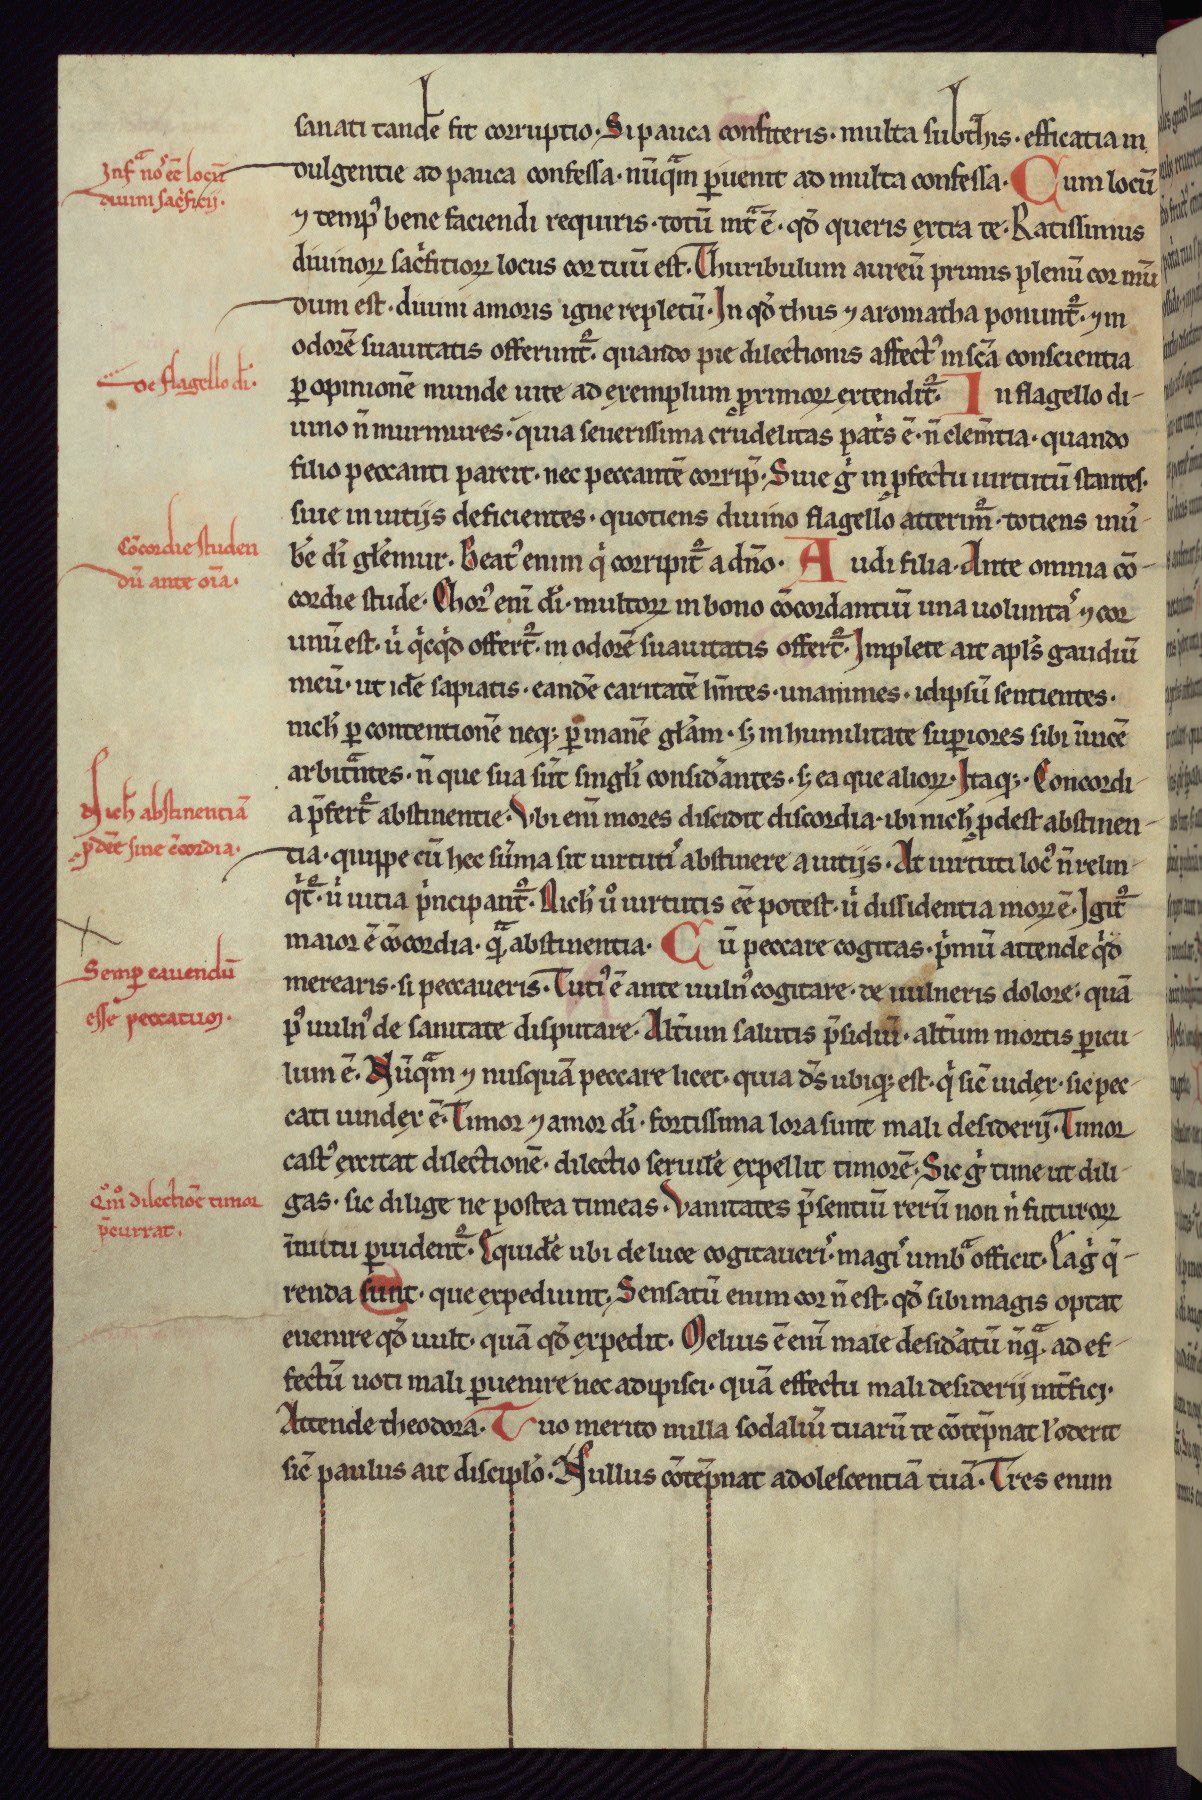 sanati tandē fit corruptio· Si pauca confiteris· multa subthis· efficatia in
dulgentie ad pauca confessa· nūqͣm ꝑuenit ad multa confessa· Cum locū
Infͣ nos eē locū
diuini sacͥficij·
⁊ temp᾿ bene faciendi requiris· totū intͣ ē· qđ queris extra te· Ratissimus
diuinoꝝ sacͥfitioꝝ locus cor tuū est· Thuribulum aureū prunis plenū cor mū
dum est· diuini amoris igne repletū· In qđ thus ⁊ aromatha ponunt᷒· ⁊ in
odorē suauitatis offerunt᷒· quando pie dilectionis affect᾿ in scā conscientia
de flagello dī·
ꝑ opinionē munde uite ad exemplum primoꝝ extendit᷒· In flagello di-
uino n̄ murmures· quia seuerissima crudelitas patͥs ē· n̄ clem̄tia· quando
filio peccanti parcit· nec peccantē corrip̄· Siue gͥ in ꝓfectu uirtutū stantes·
siue in uitijs deficientes· quotiens diuino flagello atterim᷒· totiens im̄-
Cōcordie studen
dū ante oīa·
bē dī gl̄emur· Beat᾿ enim qͥ corripit᷒ a dn̄o· Audi filia· Ante omnia cō-
cordie stude· Chor᾿ enī dī· multoꝝ in bono cōcordantiū una uolunta᾿ ⁊ cor
unū est· uͥ qͥcqͥd offert᷒· in odorē suauitatis offert᷒· Implete ait apl̄s gaudiū
meū· ut idē sapiatis· eandē caritatē hn̄tes· unanimes· idipsū sentientes·
nich̄ ꝑ contentionē neqꝫ ꝑ inanē gl̄am· sꝫ in humilitate suꝑiores sibi īuicē
arbitͣntes· n̄ que sua sūt singl̄i consid̄antes· sꝫ ea que alioꝝ· Itaqꝫ· Concordi
Nich̄ abstinentiā
ꝓdēē sine cͦcordia·
a p̄fert᷒ abstinentie· Vbi enī mores discidit discordia· ibi nich̄ ꝓdest abstinen-
tia· quippe cū hec sūma sit uirtuti᾿ abstinere a uitijs· At uirtuti loc᾿ n̄ relin-
qͥt᷒· uͥ uitia pͥncipant᷒· Nich̄ uͦ uirtutis eē potest· uͥ dissidentia moꝝ ē· Igit᷒
maior ē cōcordia· qͣm abstinentia· Cū peccare cogitas· pͥmū attende qͥd
Semꝑ cauendū
esse peccatum·
merearis· si peccaueris· Tuti᾿ ē ante uuln᾿ cogitare· de uulneris dolore· quā
p᾿ uuln᾿ de sanitate disputare· Alt̄um salutis p̄sidiū· alt̄um mortis ꝑicu-
lum ē· Nūqͣm ⁊ nusquā peccare licet· quia dс̄ ubiqꝫ est· qͥ sic̄ uidex· sic pec-
cati uindex ē· Timor ⁊ amor dī· fortissima lora sunt mali desiderij· Timor
cast᾿ excitat dilectionē· dilectio seruilē expellit timorē· Sic gͥ time ut dili-
Qͦm dilectionē timor
p̄currat·
gas· sic dilige ne postea timeas· Vanitates p̄sentiū rerū non nͥ futuroꝝ
ītuitu ꝑuident᷒· Equidē ubi de luce cogitaueri᾿· magi᾿ umbͣ officit· Ea gͥ q̄-
renda sunt· que expediunt· Sensatū enim cor n̄ est· qđ sibi magis optat
euenire qđ uult· quā qđ expedit· Melius ē enī male desid̄atū nūqͣ· ad ef-
fectū uoti mali ꝑuenire nec adipisci· quā effectu mali desiderij int̄fici·
Attende theodora· Tuo merito nulla sodaliū tuarū te cōtēpnat ł oderit
sic̄ paulus ait discipl̄o· Nullus cōtēpnat adolescentiā tuā· Tres enim